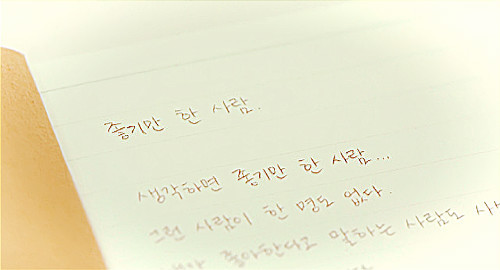 좋기만 한 사람.
생각하면 좋기만 한 사람...
그런 사람이 한 명도 없다.
좋아한다고 말하는 사람도